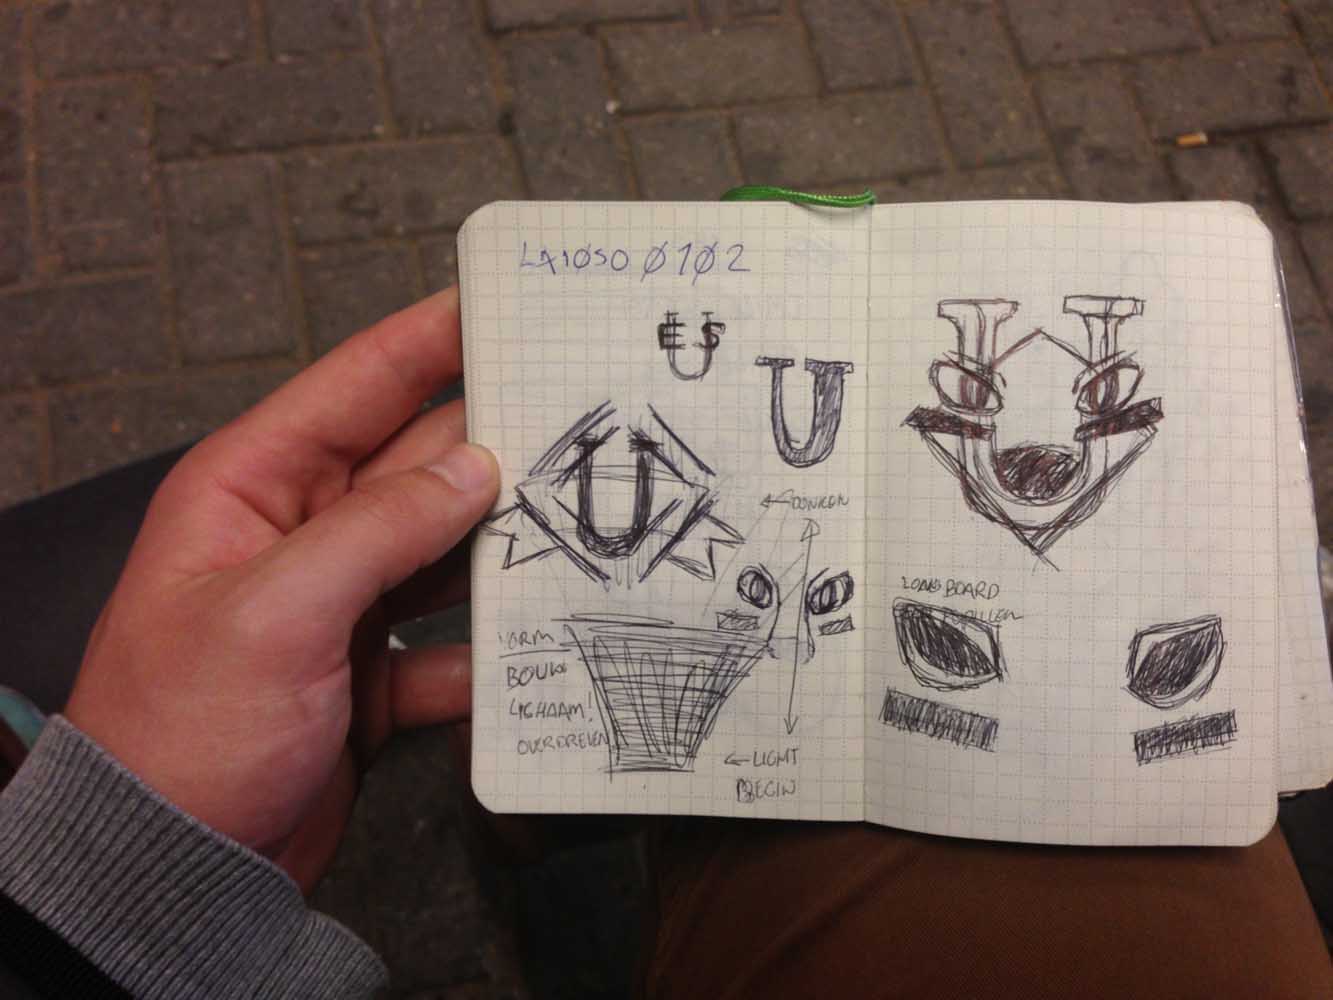 LAIØSO Ø1Ø2
E U S
U
U
DONKER
VORM
BOUW
LICHAAM!
OVERDREVEN
LIGHT
BEGIN
U
LONGBOARD